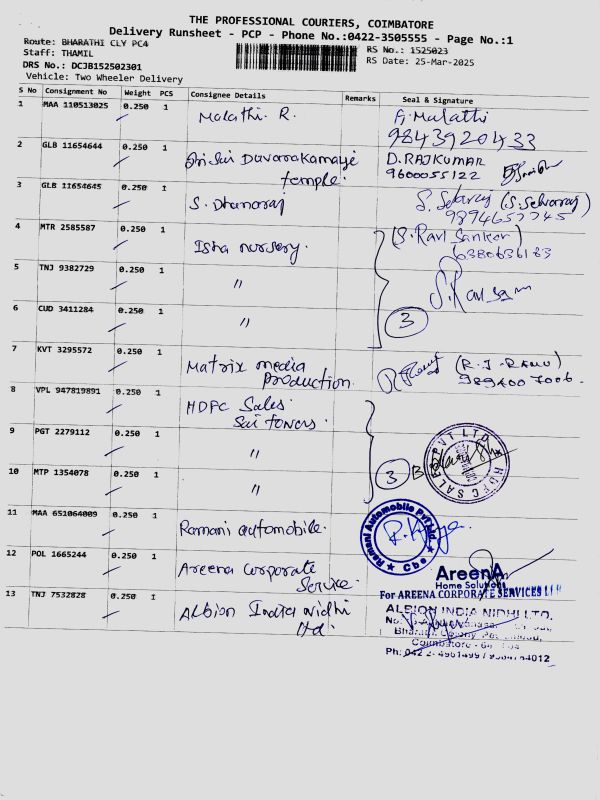 THE PROFESSIONAL COURIERS, COIMBATORE
Delivery Runsheet - PCP - Phone No.:0422-3505555 - Page No.:1
Route: BHARATHI CLY PC4
RS No.: 1525023
Staff: THAMIL
RS Date: 25-Mar-2025
DRS No.: DCJB152502301
Vehicle: Two Wheeler Delivery
S No Consignment No Weight PCS Consignee Details Remarks Seal & Signature
1 MAA 110513025 0.250 1 Malathi. R. A. Malathi
9843920433
2 GLB 11654644 0.250 1 Sri Sai Davarakamayi D. RAJKUMAR
temple. 9600055122
3 GLB 11654645 0.250 1 S. Dhanaraj S. Selvaraj (S. Selvaraj)
9894657745
4 MTR 2585587 0.250 1 Isha nursery. (S. Ravi Sankar)
6380636183
5 TNJ 9382729 0.250 1 "
6 CUD 3411284 0.250 1 " 3
7 KVT 3295572 0.250 1 Matrix media (R.J-RAMU)
production. 9894007006.
8 VPL 947819891 0.250 1 HDFC Sales
Sai towers
9 PGT 2279112 0.250 1 "
PVT LTD HDFC SALES
10 MTP 1354078 0.250 1 " 3
11 MAA 651064009 0.250 1 Ramani automobile.
Ramani Automobile Pvt Ltd
Cbe
12 POL 1665244 0.250 1 Areena Corporate
Service.
AreenA
Home Solutions
For AREENA CORPORATE SERVICES
13 TNJ 7532828 0.250 1 Albion India Nidhi
Ltd.
ALBION INDIA NIDHI LTD.
No:
Bharathi Colony
Coimbatore - 
Ph: 0422-4961499 /